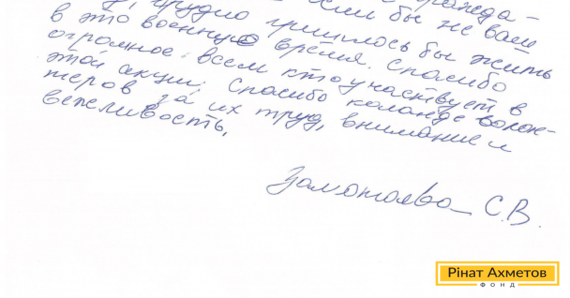 если бы не ваш
трудно пришлось бы жить
в это военную время. Спасибо
огромное всем кто участвует в
этой акции. Спасибо команде волон-
теров за их труд, внимание и
вежливость,
С.В.
Рінат Ахметов
ФОНД